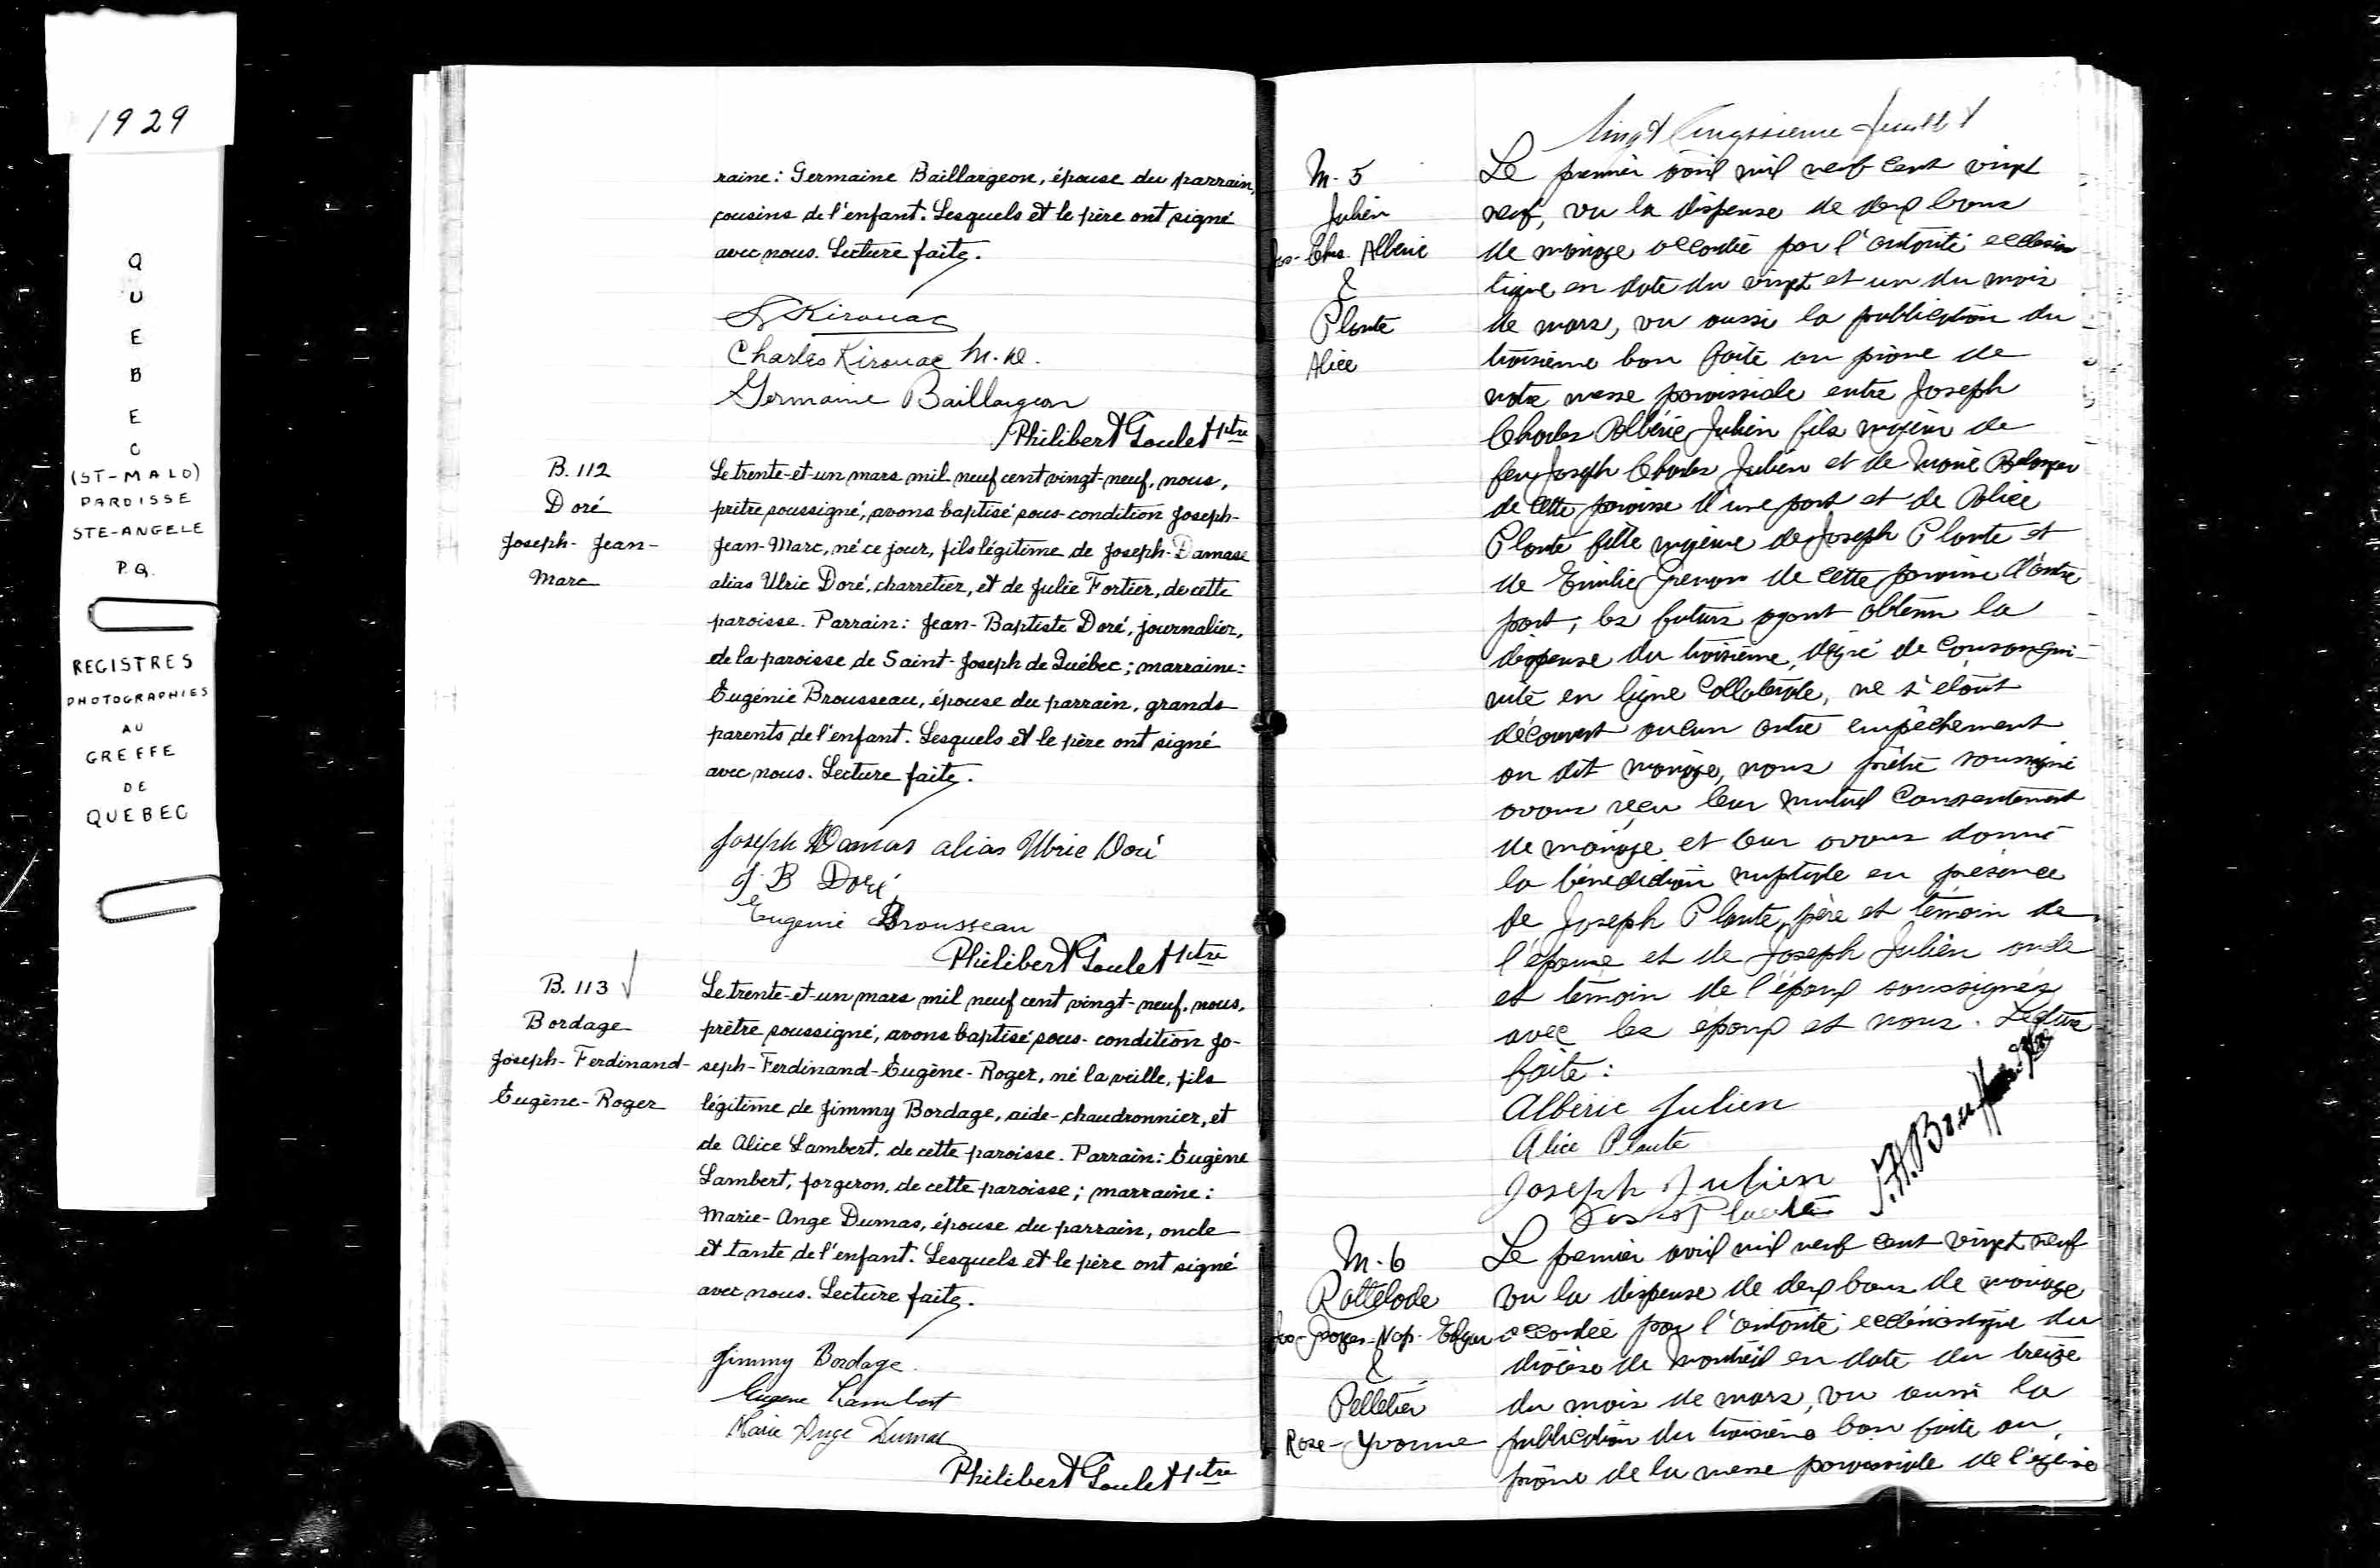 1929
QUEBEC
(ST-MALO)
PAROISSE
STE-ANGELE
P.Q.
REGISTRES
PHOTOGRAPHIES
AU
GREFFE
DE
QUEBEC
raine: Germaine Baillargeon, épouse du parrain,
cousins de l'enfant. Lesquels et le père ont signé
avec nous. Lecture faite.
Kirouac
Charles Kirouac M.D.
Germaine Baillargeon
Philibert Goulet ptre
B. 112
Doré
Joseph-Jean-
Marc
Le trente-et-un mars mil neuf cent vingt-neuf, nous,
prêtre soussigné, avons baptisé sous-condition Joseph-
Jean-Marc, né ce jour, fils légitime de Joseph-Damase
alias Ulric Doré, charretier, et de Julie Fortier, de cette
paroisse. Parrain: Jean-Baptiste Doré, journalier,
de la paroisse de Saint-Joseph de Québec; marraine:
Eugénie Brousseau, épouse du parrain, grands-
parents de l'enfant. Lesquels et le père ont signé
avec nous. Lecture faite.
Joseph Damas alias Ulric Doré
J. B Doré
Eugenie Brousseau
Philibert Goulet ptre
B. 113
Bordage
Joseph-Ferdinand-
Eugène-Roger
Le trente-et-un mars mil neuf cent vingt-neuf, nous,
prêtre soussigné, avons baptisé sous-condition Jo-
seph-Ferdinand-Eugène-Roger, né la veille, fils
légitime de Jimmy Bordage, aide-chaudronnier, et
de Alice Lambert, de cette paroisse. Parrain: Eugène
Lambert, forgeron, de cette paroisse; marraine:
Marie-Ange Dumas, épouse du parrain, oncle
et tante de l'enfant. Lesquels et le père ont signé
avec nous. Lecture faite.
Jimmy Bordage.
Eugene Lambert
Marie Ange Dumas
Philibert Goulet ptre
Vingt Cinquieme feuillet
M. 5
Julien
Jos-Chs. Albéric
&
Plante
Alice
Le premier avril mil neuf cent vingt
neuf, vu la dispense de deux bans
de mariage accordée par l'autorité ecclésias
tique en date du vingt et un du mois
de mars, vu aussi la publication du
troisième ban faite au prône de
notre messe paroissiale entre Joseph
Charles Albéric Julien fils majeur de
feu Joseph Charles Julien et de Marie Belanger
de cette paroisse d'une part et de Alice
Plante fille majeure de Joseph Plante et
de Emilie Grenon de cette paroisse d'autre
part; les futurs ayant obtenu la
dispense du troisième degré de consangui-
nité en ligne collatérale, ne s'étant
découvert aucun autre empêchement
au dit mariage, nous prêtre soussigné
avons reçu leur mutuel consentement
de mariage et leur avons donné
la bénédiction nuptiale en présence
de Joseph Plante, père et témoin de
l'épouse et de Joseph Julien oncle
et témoin de l'époux soussignés
avec les époux et nous. Lecture
faite:
Albéric Julien
Alice Plante
Joseph Julien
Plante
M. 6
Rattelade
Edgar
&
Pelletier
Rose-Yvonne
Le premier avril mil neuf cent vingt neuf
vu la dispense de deux bans de mariage
accordée par l'autorité ecclésiastique du
diocèse de Montréal en date du treize
du mois de mars, vu aussi la
publication du troisième ban faite au
prône de la messe paroissiale de l'église